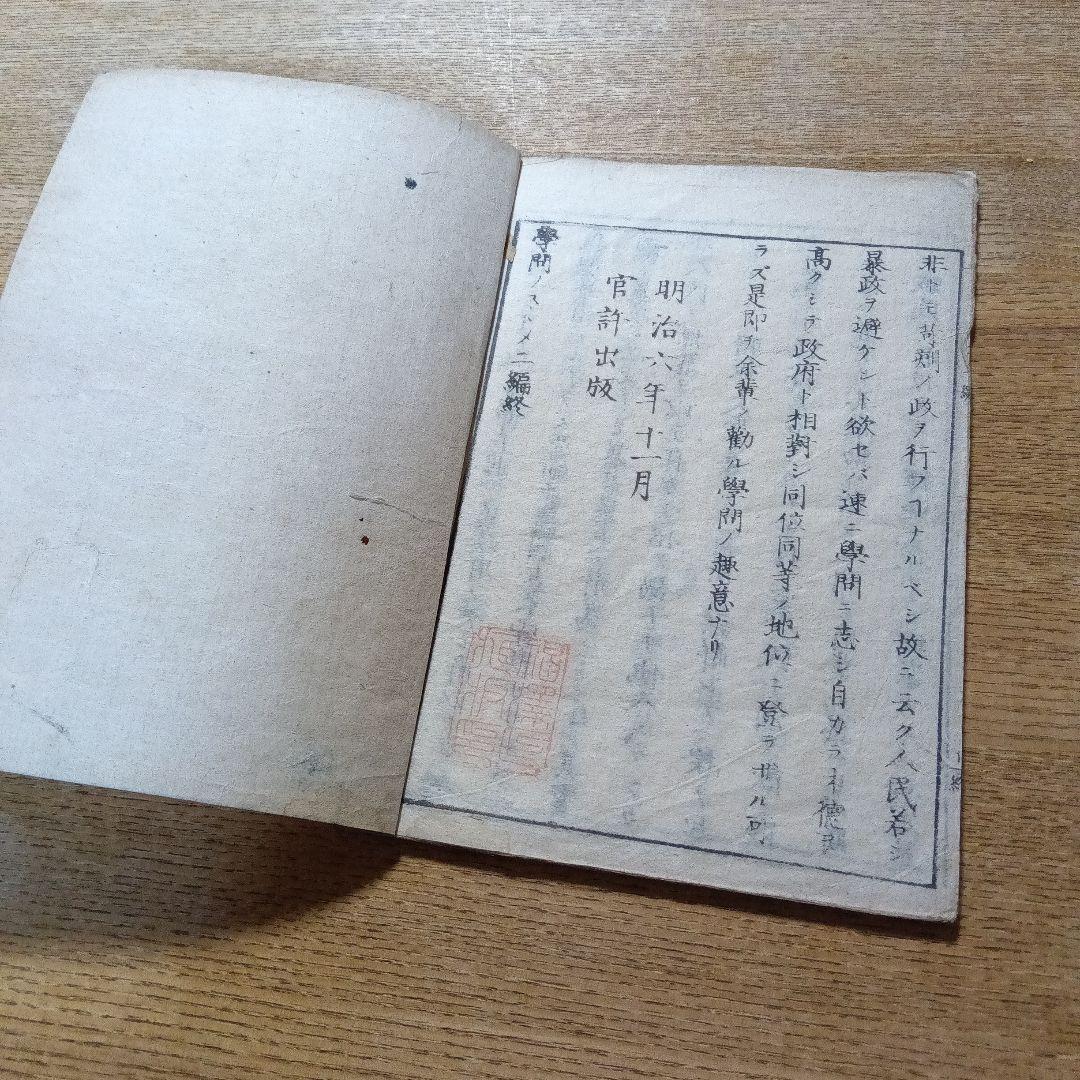 苛刻ノ政ヲ行フヿナルベシ故ニ云ク人民若シ
暴政ヲ避ケント欲セバ速ニ學問ニ志シ自カラ才徳ヲ
高クシテ政府ト相對シ同位同等ノ地位ニ登ラザル可
ラズ是即チ余輩ノ勸ル學問ノ趣意ナリ
明治六年十一月
官許出版
學問ノスヽメ二編終